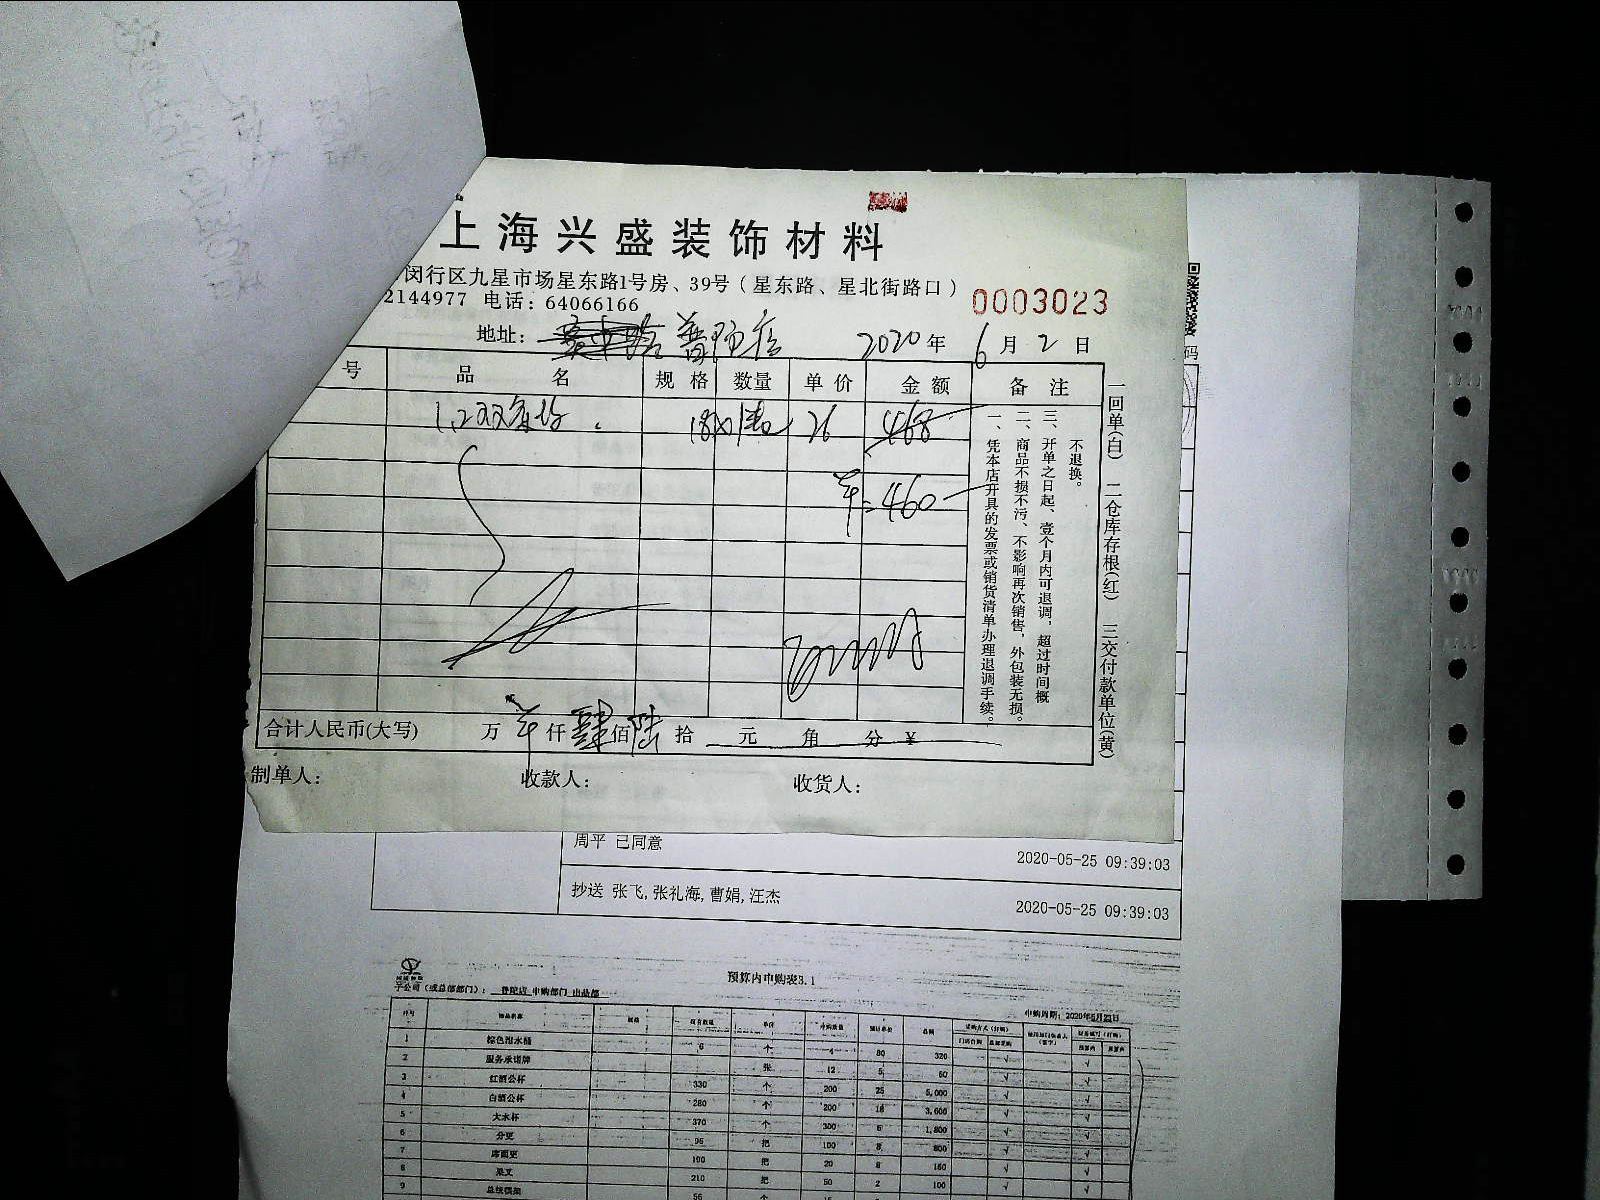 上海兴盛装饰材料
闵行区九星市场星东路1号房、39号（星东路、星北街路口）
2144977 电话：64066166
0003023
地址： 普陀店 2020年6月2日
号 品名 规格 数量 单价 金额 备注
26 468
460
一、凭本店开具的发票或销货清单办理退调手续。
二、商品不损不污、不影响再次销售，外包装无损。
三、开单之日起、壹个月内可退调，超过时间概
不退换。
一回单(白) 二仓库存根(红) 三交付款单位(黄)
合计人民币(大写) 万 仟肆佰陆拾 元 角 分 ¥
制单人： 收款人： 收货人：
码
周平 已同意 2020-05-25 09:39:03
抄送 张飞,张礼海,曹娟,汪杰 2020-05-25 09:39:03
预算内申购表3.1
子公司（或总部部门）： 普陀店 申购部门 出品部
申购周期：2020年5月23日
序号 物品名称 规格 现有数量 单位 申购数量 预计单价 总额
1 棕色泔水桶 6 个 4 80 320 √ √
2 服务承诺牌 张 12 5 60 √ √
3 红酒公杯 330 个 200 25 5,000 √ √
4 白酒公杯 280 个 200 18 3,600 √ √
5 大水杯 370 个 300 6 1,800 √ √
6 分更 95 把 100 8 800 √ √
7 席面更 100 把 20 8 160 √ √
8 果叉 210 把 50 2 100 √ √
9 56 个